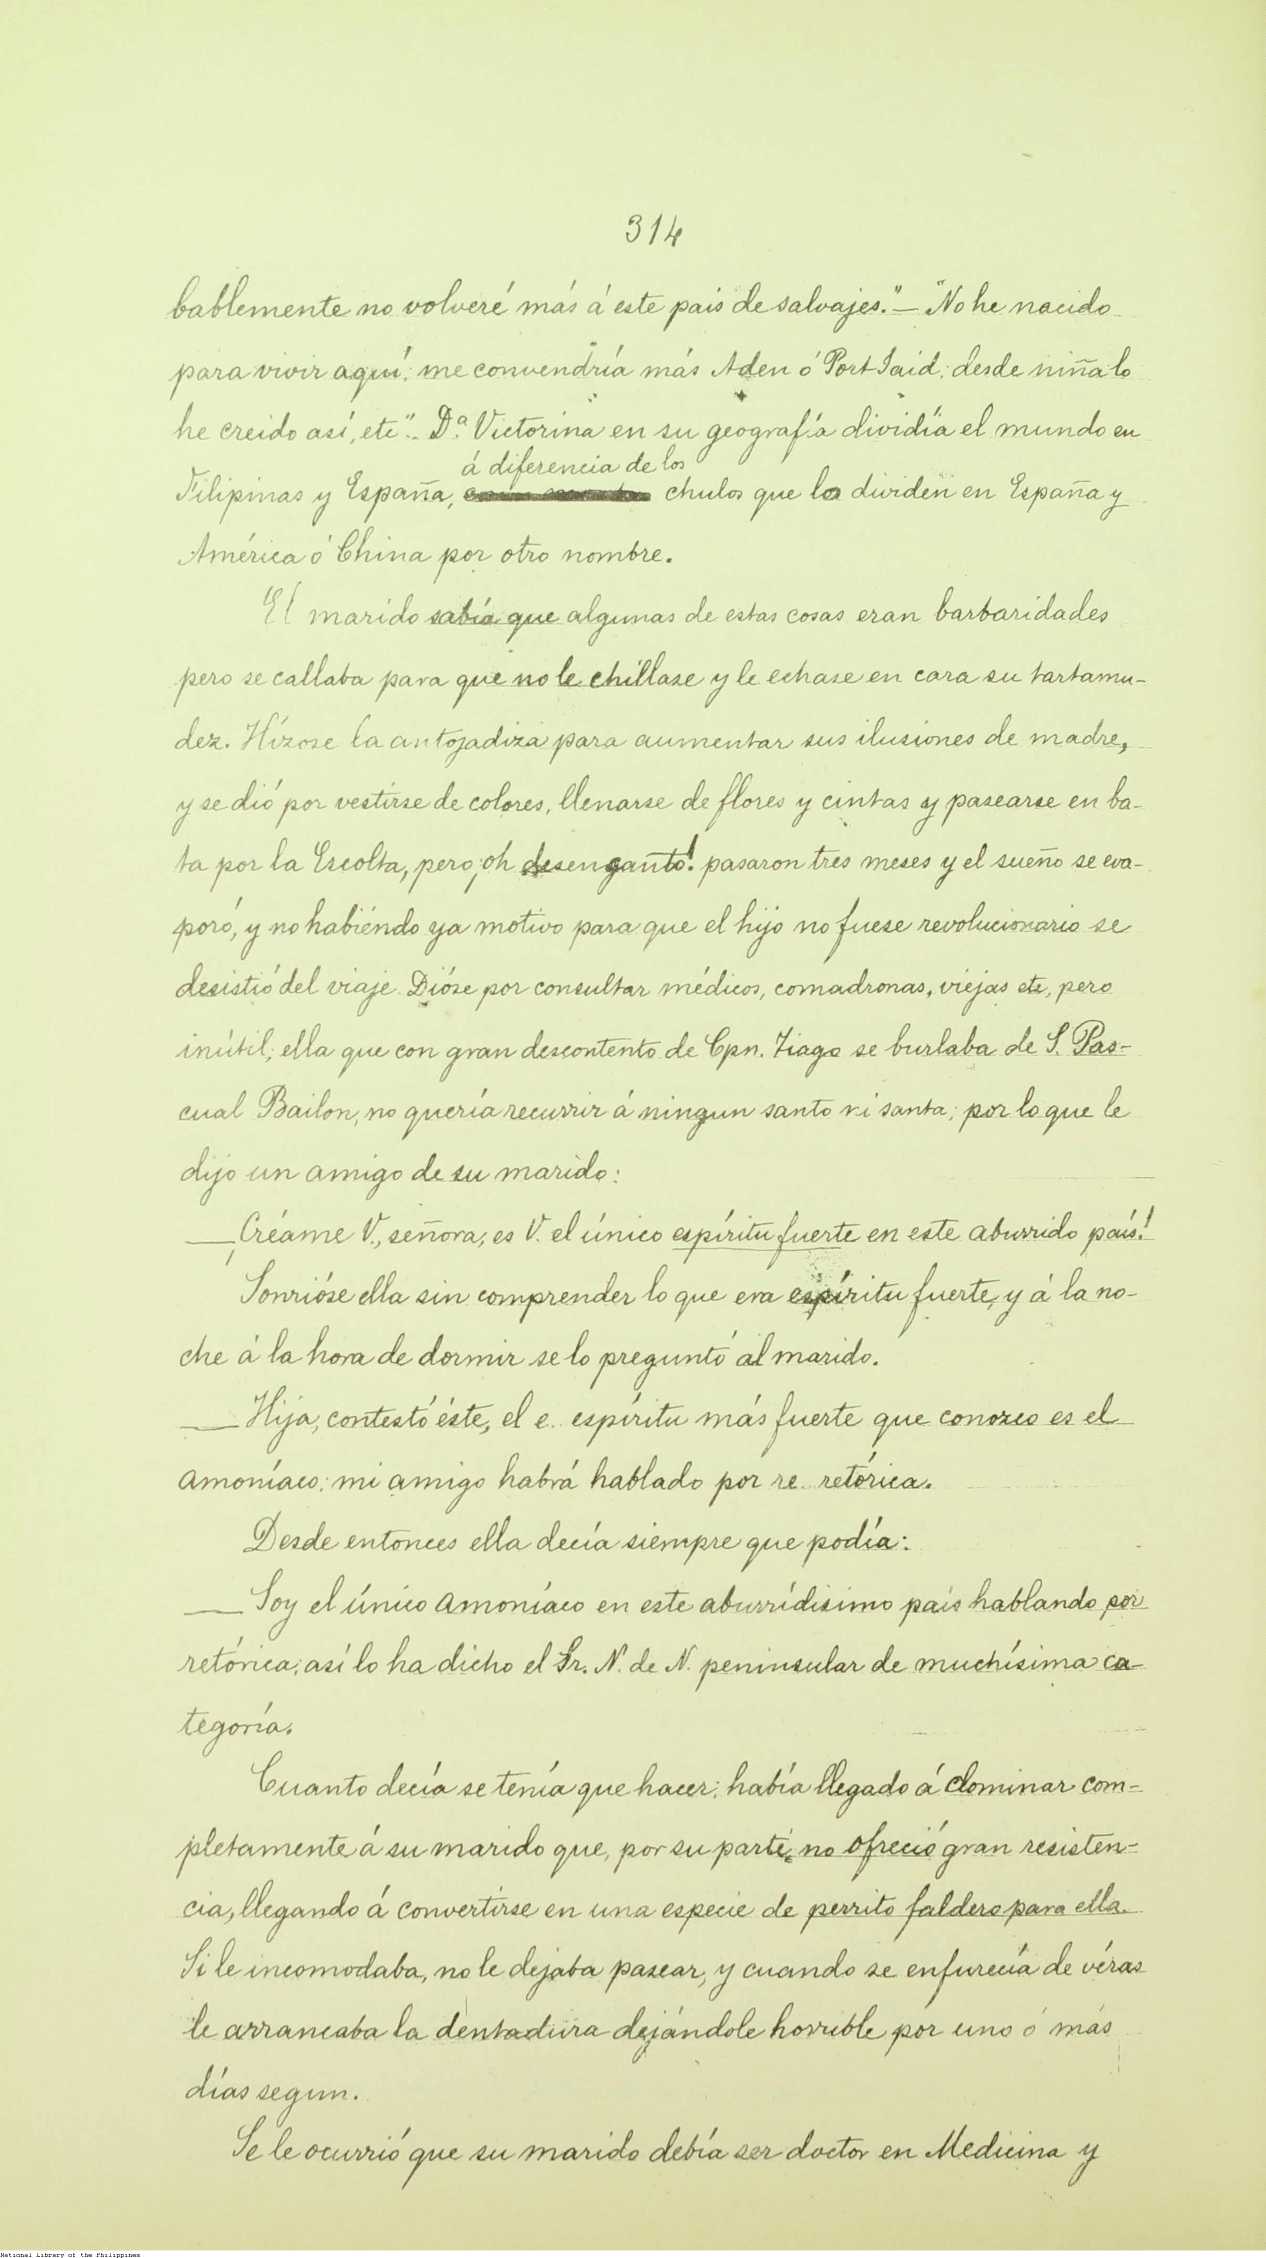 314
bablemente no volveré más á este pais de salvajes."— "No he nacido
para vivir aquí; me convendría más Aden ó Port Said; desde niña lo
he creido así, etc". D.ª Victorina en su geografía dividía el mundo en
á diferencia de los
Filipinas y España, chulos que lo dividen en España y
América ó China por otro nombre.
El marido sabía que algunas de estas cosas eran barbaridades
pero se callaba para que no le chillase y le echase en cara su tartamu-
dez. Hízose la antojadiza para aumentar sus ilusiones de madre,
y se dió por vestirse de colores, llenarse de flores y cintas y pasearse en ba-
ta por la Escolta, pero ¡oh desengaño! pasaron tres meses y el sueño se eva-
poró, y no habiéndo ya motivo para que el hijo no fuese revolucionario se
desistió del viaje. Dióse por consultar médicos, comadronas, viejas etc, pero
inútil; ella que con gran descontento de Cpn. Tiago se burlaba de S. Pas-
cual Bailon, no quería recurrir á ningun santo ni santa; por lo que le
dijo un amigo de su marido:
—¡Créame V., señora; es V. el único espíritu fuerte en este aburrido país!
Sonrióse ella sin comprender lo que era espíritu fuerte, y á la no-
che á la hora de dormir se lo preguntó al marido.
—Hija, contestó éste, el e.. espíritu más fuerte que conozco es el
amoníaco; mi amigo habrá hablado por re.. retórica.
Desde entonces ella decía siempre que podía:
—Soy el único amoníaco en este aburrídisimo país hablando por
retórica; así lo ha dicho el Sr. N. de N. peninsular de muchísima ca
tegoría.
Cuanto decía se tenía que hacer; había llegado á dominar com-
pletamente á su marido que, por su parte, no ofreció gran resisten-
cia, llegando á convertirse en una especie de perrito faldero para ella.
Si le incomodaba, no le dejaba pasear, y cuando se enfurecía de véras
le arrancaba la dentadura dejándole horrible por uno ó más
días segun.
Se le ocurrió que su marido debía ser doctor en Medicina y
National Library of the Philippines